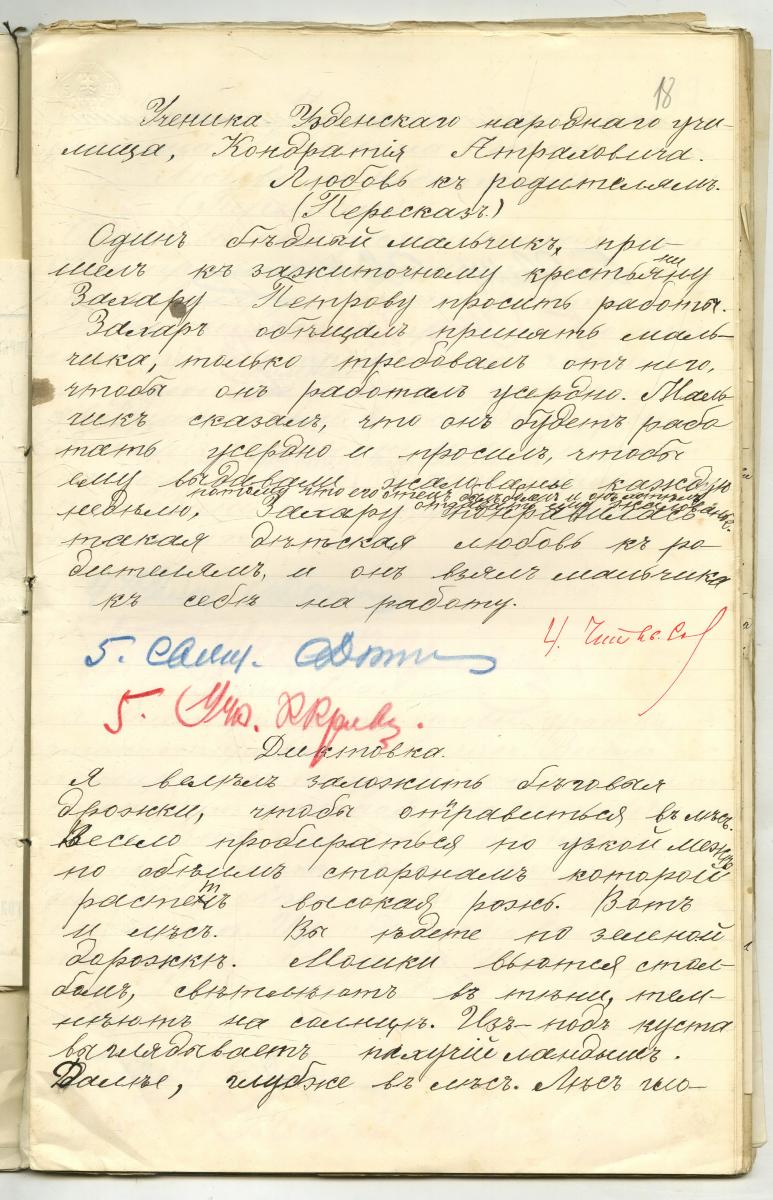 18
Ученика Узденскаго народнаго учи-
лища, Кондратія Атраховича.
Любовь къ родителямъ.
(Пересказъ)
Одинъ бѣдный мальчикъ, при-
шелъ къ зажиточному крестьянину
Захару Петрову просить работы.
Захаръ обѣщалъ принять маль-
чика, только требовалъ отъ него,
чтобы онъ работалъ усердно. Маль
чикъ сказалъ, что онъ будетъ рабо
тать усердно и просилъ, чтобы
ему выдавали жалованье каждую
потому что его отецъ и
недѣлю, Захару понравилась
такая дѣтская любовь къ ро-
дителямъ, и онъ взялъ мальчика
къ себѣ на работу.
4.
5.
5. Уч.
Диктовка.
Я велѣлъ заложить бѣговыя
дрожки, чтобы отправиться въ лѣсъ.
Весело пробираться по узкой межѣ
по обѣимъ сторонамъ которой
растетъ высокая рожь. Вотъ
и лѣсъ. Вы ѣдете по зеленой
дорожкѣ. Мошки вьются стол-
бомъ, свѣтлѣютъ въ тѣни, тем-
нѣютъ на солнцѣ. Изъ-подъ куста
выглядываетъ пахучій ландышъ.
Далѣе, глубже въ лѣсъ. Лѣсъ гло-